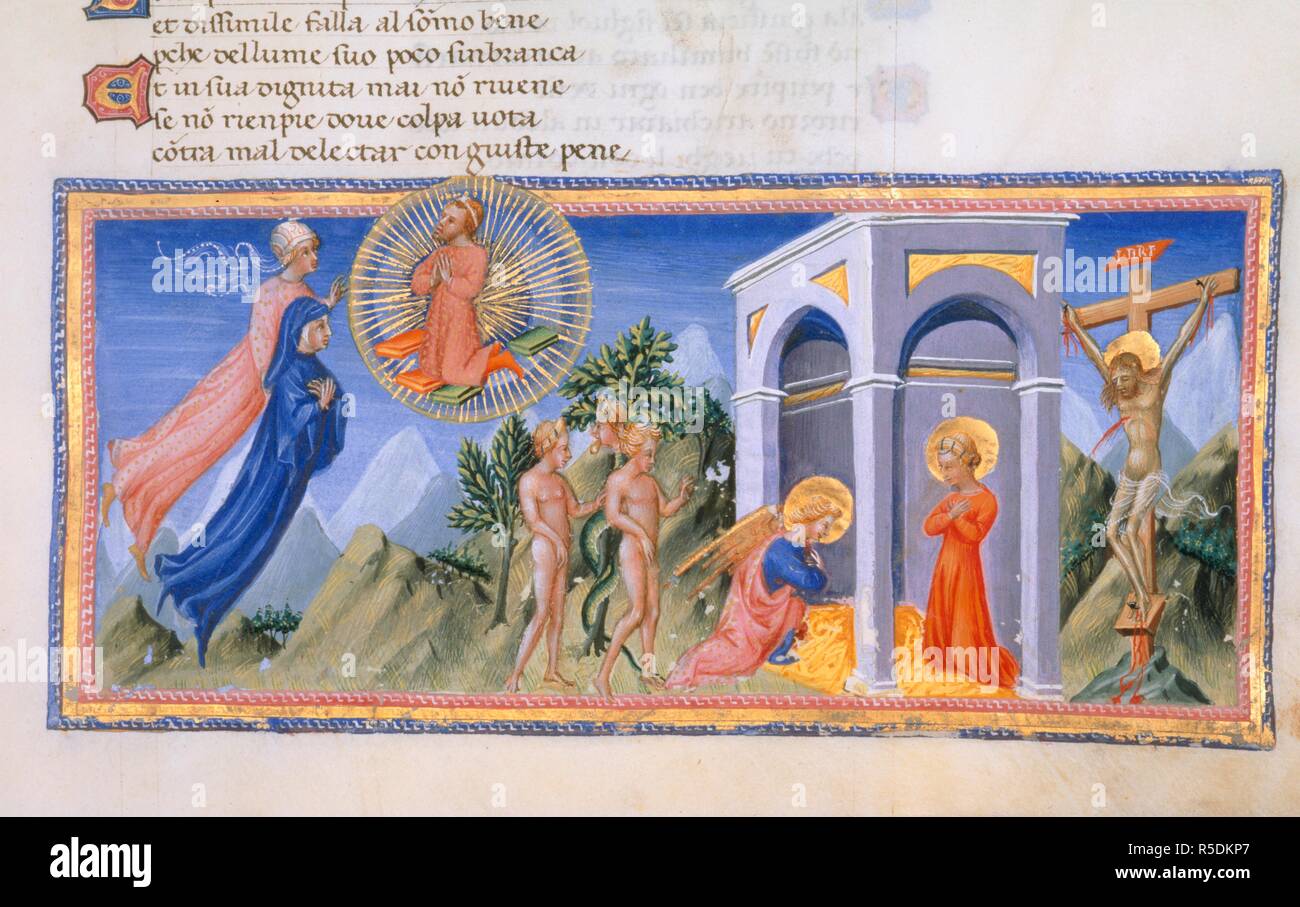 et dissimile falla al sõmo bene
pche dellume suo poco sinbianca
Et in sua dignita mai nõ riuene
se nõ rienpie doue colpa uota
cõtra mal delectar con giuste pene
I.N.R.I
a
alamy
a
alamy
Image ID: R5DKP7
www.alamy.com